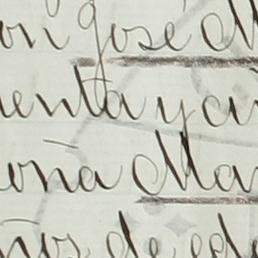 on José M
enta y ci
oña Ma
ños de ed